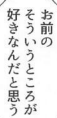 お前の
そういうところが
好きなんだと思う